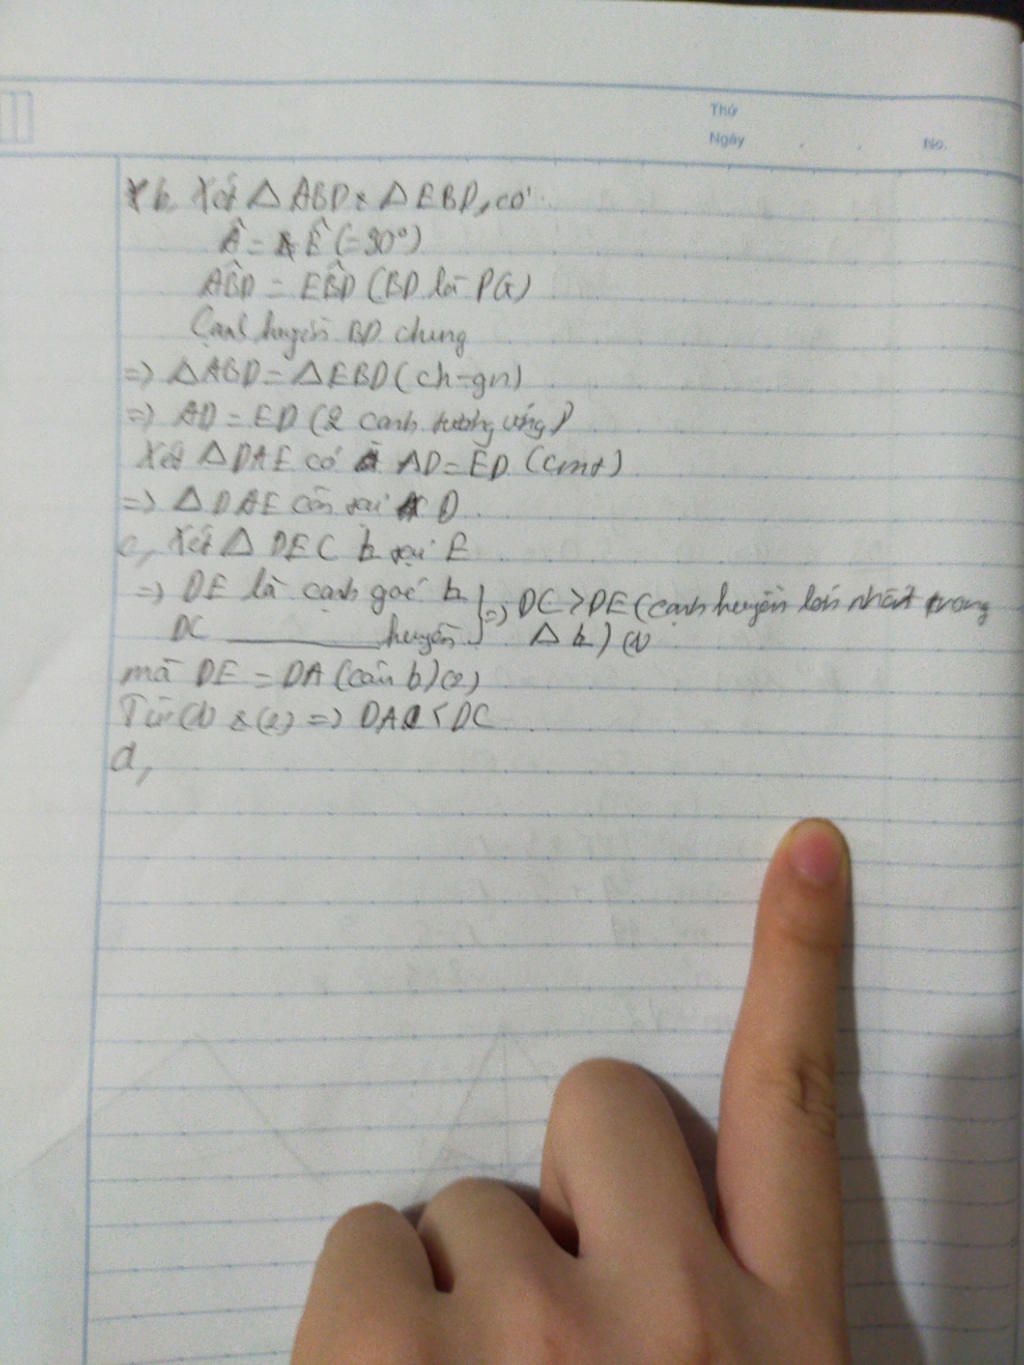 Thứ
Ngày . . No.
b, Xét △ ABD & △ EBD, có
Â = Ê (= 90°)
AB̂D = EB̂D (BD là PG)
Cạnh huyền BD chung
=> △ABD = △EBD (ch-gn)
=> AD = ED (2 cạnh tương ứng)
Xét △DAE có AD = ED (cmt)
=> △DAE cân tại D
c, Xét △ DEC tại E
=> DE là cạnh góc
DC ________ huyền } => DC > DE (cạnh huyền lớn nhất trong
△ ) (1)
mà DE = DA (câu b) (2)
Từ (1) & (2) => DA < DC
d,